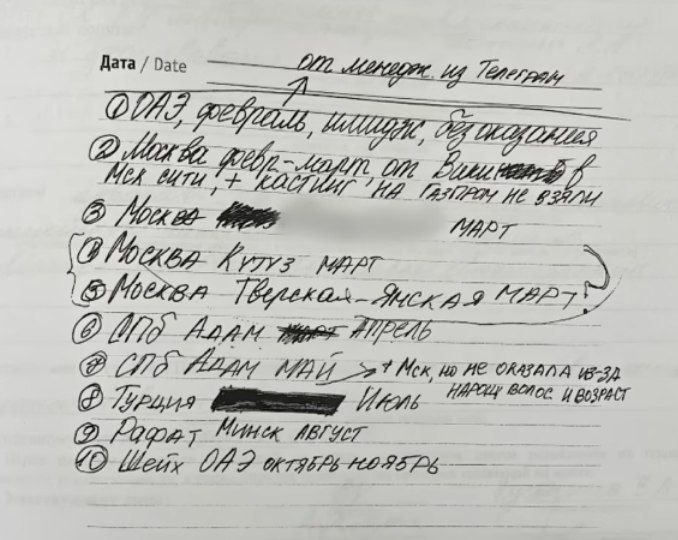 Дата / Date от менедж. из Телеграм
① ОАЭ, февраль, имидж, без оказания
② Москва февр-март, от Вики в
Мск сити, + кастинг на Газпром не взяли
③ Москва март
④ Москва Кутуз март
⑤ Москва Тверская-Янская март ?
⑥ СПб Адам Апрель
⑦ СПб Адам май → + Мск, но не оказала из-за
нарощ волос и возраст
⑧ Турция Июль
⑨ Рафат Минск август
⑩ Шейх ОАЭ октябрь-ноябрь